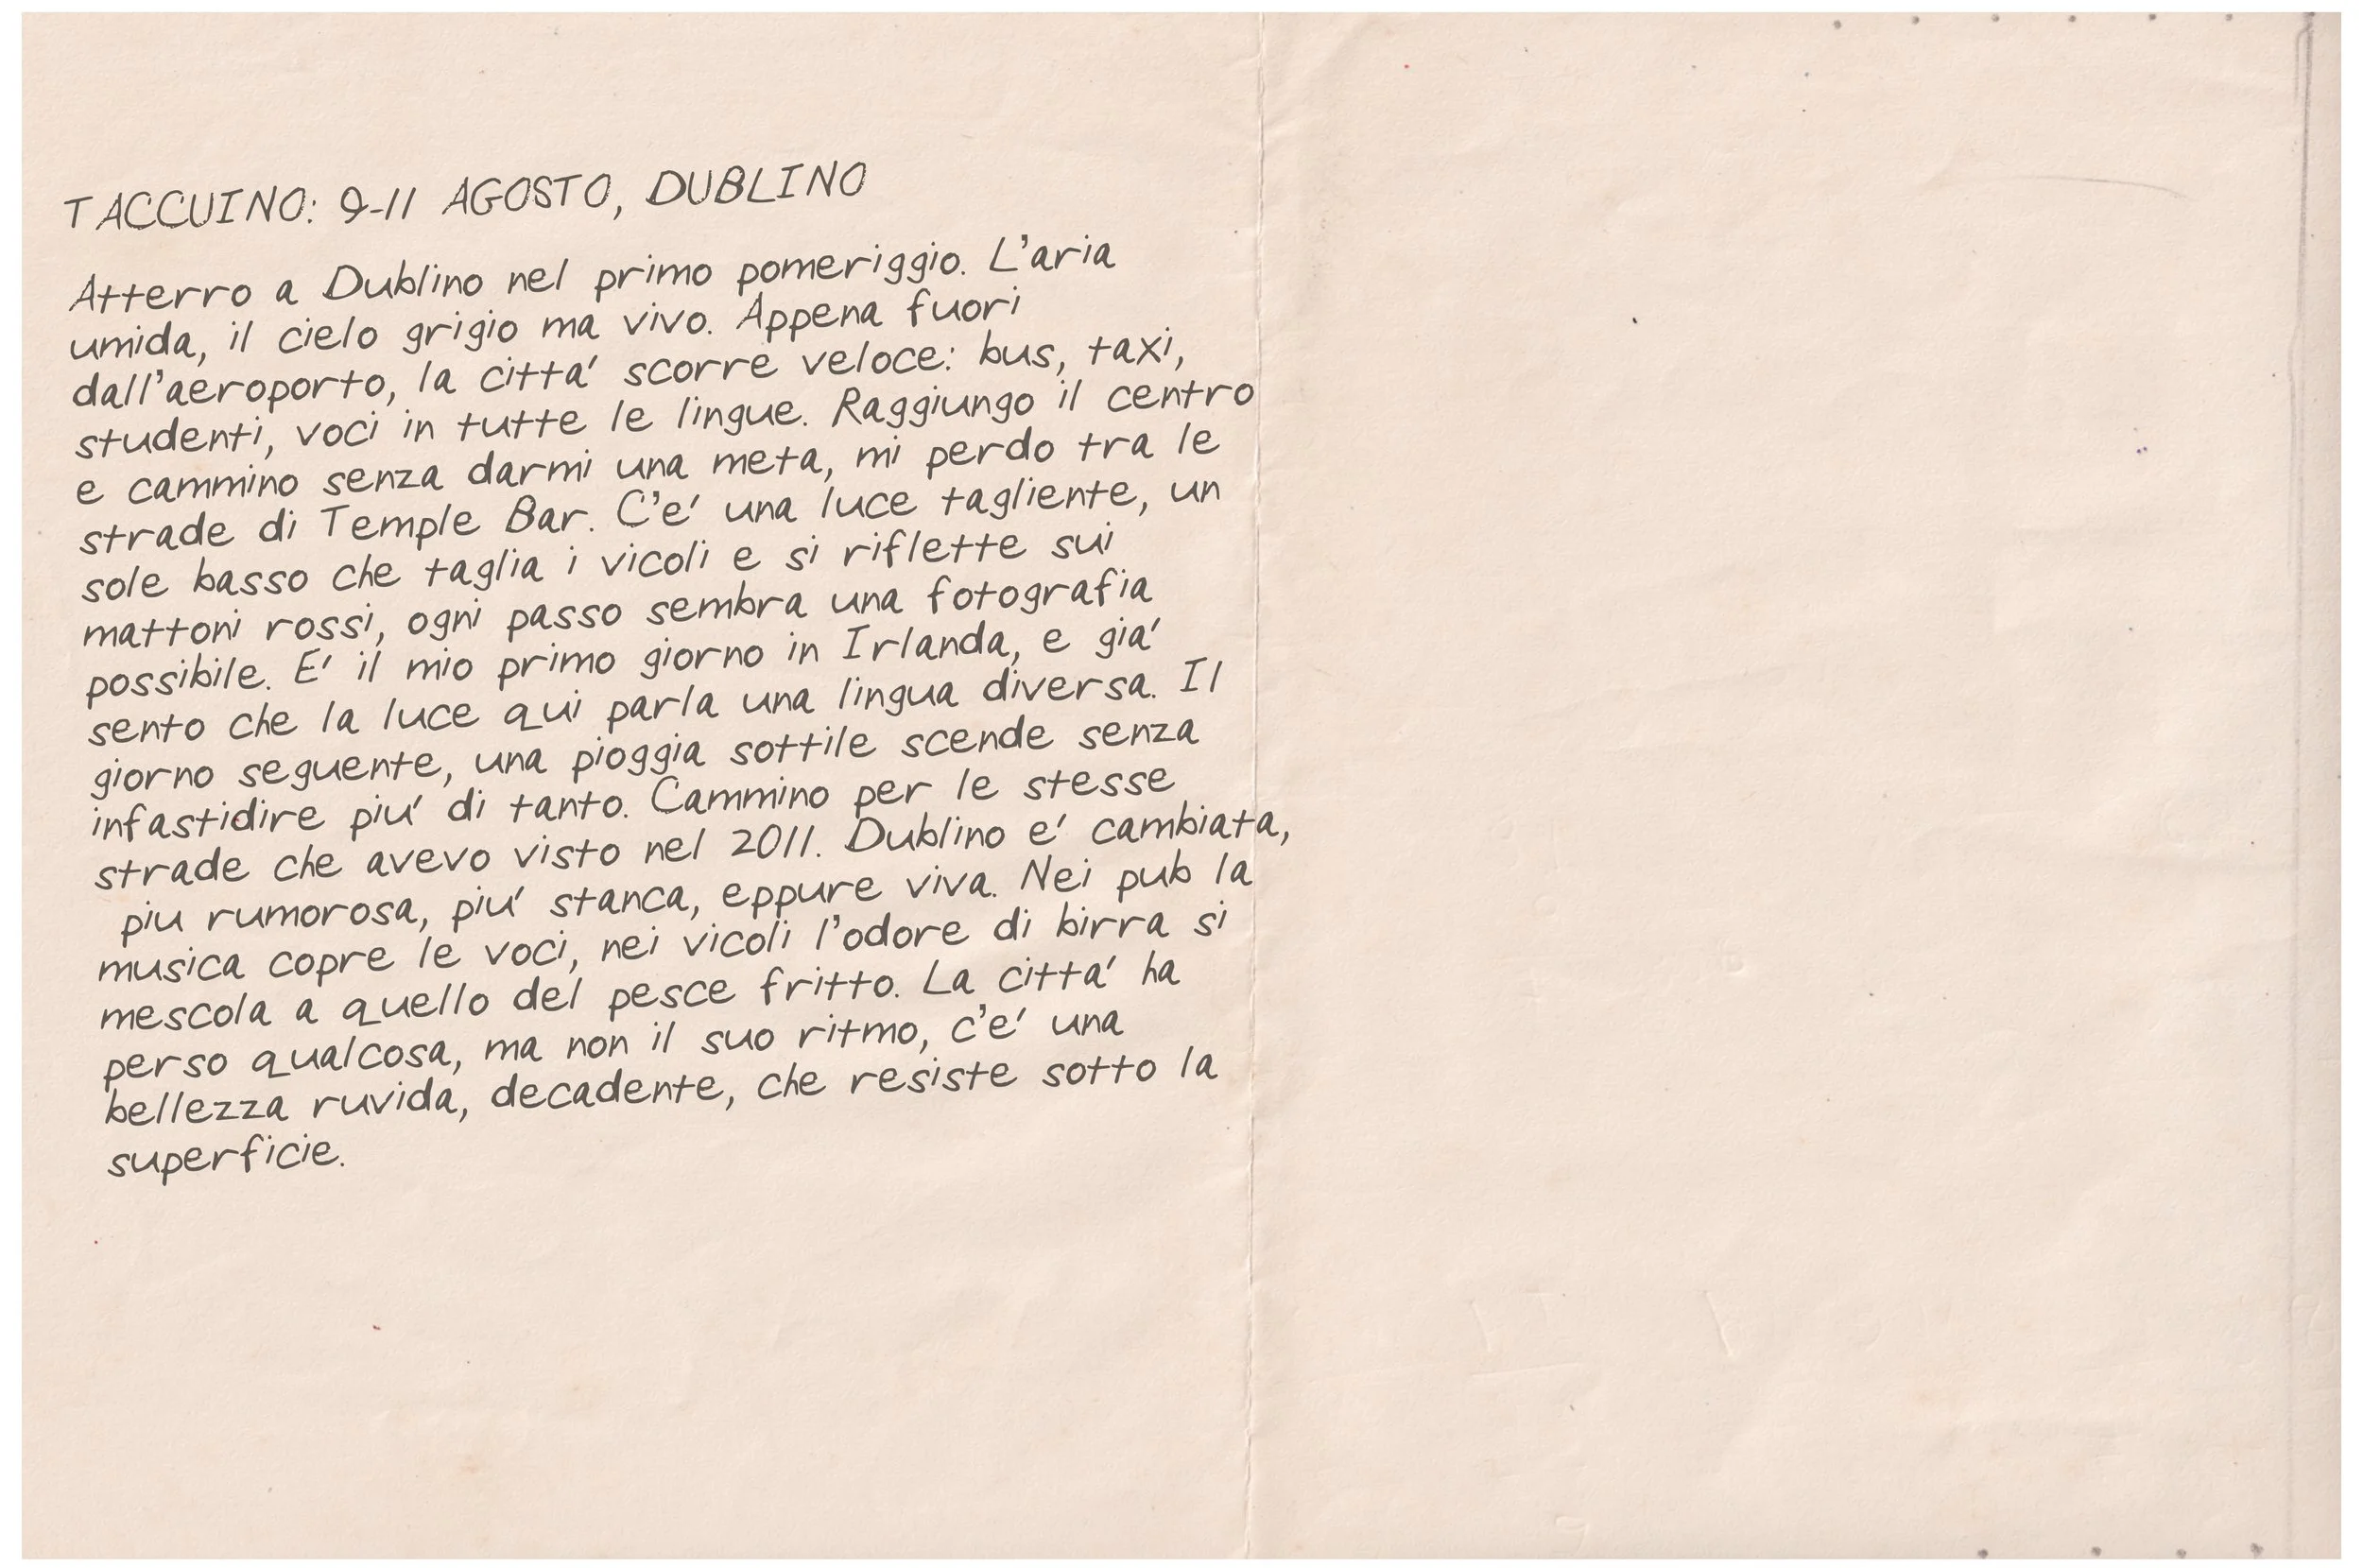 TACCUINO: 9-11 AGOSTO, DUBLINO
Atterro a Dublino nel primo pomeriggio. L'aria
umida, il cielo grigio ma vivo. Appena fuori
dall'aeroporto, la citta' scorre veloce: bus, taxi,
studenti, voci in tutte le lingue. Raggiungo il centro
e cammino senza darmi una meta, mi perdo tra le
strade di Temple Bar. C'e' una luce tagliente, un
sole basso che taglia i vicoli e si riflette sui
mattoni rossi, ogni passo sembra una fotografia
possibile. E' il mio primo giorno in Irlanda, e gia'
sento che la luce qui parla una lingua diversa. Il
giorno seguente, una pioggia sottile scende senza
infastidire piu' di tanto. Cammino per le stesse
strade che avevo visto nel 2011. Dublino e' cambiata,
piu rumorosa, piu' stanca, eppure viva. Nei pub la
musica copre le voci, nei vicoli l'odore di birra si
mescola a quello del pesce fritto. La citta' ha
perso qualcosa, ma non il suo ritmo, c'e' una
bellezza ruvida, decadente, che resiste sotto la
superficie.